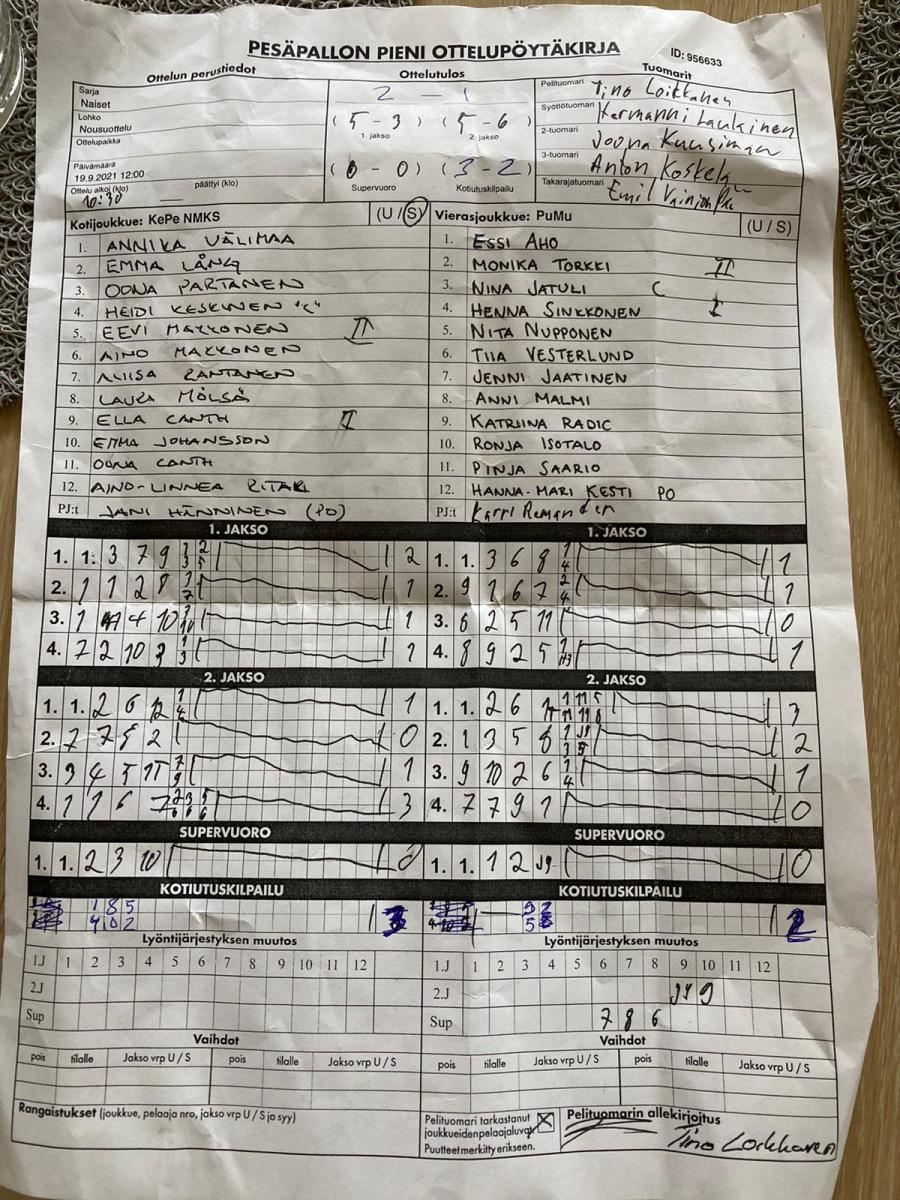 PESÄPALLON PIENI OTTELUPÖYTÄKIRJA
ID: 956633
Ottelun perustiedot
Ottelutulos
Tuomarit
Sarja
Naiset
Lohko
Nousuottelu
Ottelupaikka
Päivämäärä
19.9.2021 12:00
Ottelu alkoi (klo) 10:30 päättyi (klo)
2 - 1
(5 - 3) (5 - 6)
1. jakso 2. jakso
(0 - 0) (3 - 2)
Supervuoro Kotiutuskilpailu
Pelituomari Tino Loikkanen
Syöttötuomari Hermanni Laukinen
2-tuomari Joona
3-tuomari Anton Koskela
Takarajatuomari Emil
Kotijoukkue: KePe NMKS (U / S)
1. ANNIKA VÄLIMAA
2. EMMA LÅNG
3. OONA PARTANEN
4. HEIDI KESKINEN "C"
5. EEVI MAKKONEN II
6. AINO MAKKONEN
7. ALIISA RANTANEN
8. LAURA MÖLSÄ
9. ELLA CANTH I
10. EMMA JOHANSSON
11. OONA CANTH
12. AINO-LINNEA RITARI
PJ:t JANI HÄNNINEN (PO)
Vierasjoukkue: PuMu (U / S)
1. ESSI AHO
2. MONIKA TORKKI II
3. NINA JATULI C
4. HENNA SINKKONEN I
5. NITA NUPPONEN
6. TIIA VESTERLUND
7. JENNI JAATINEN
8. ANNI MALMI
9. KATRIINA RADIC
10. RONJA ISOTALO
11. PINJA SAARIO
12. HANNA-MARI KESTI PO
PJ:t Karri
1. JAKSO
1. 1. 3 7 9 1 3 2 5 2
2. 1 1 2 8 1 7 1
3. 1 4 10 1
4. 7 2 10 2 1 3 1
1. JAKSO
1. 1. 3 6 8 1 4 1
2. 9 1 6 7 2 4 1
3. 6 2 5 11 0
4. 8 9 2 5 1
2. JAKSO
1. 1. 2 6 12 1 4 1
2. 7 7 9 2 0
3. 3 4 5 11 7 9 1
4. 1 1 6 7 2 3 5 6 6 6 3
2. JAKSO
1. 1. 2 6 3
2. 1 3 5 8 2
3. 9 10 2 6 1 4 1
4. 7 7 9 1 0
SUPERVUORO
1. 1. 2 3 10 0
SUPERVUORO
1. 1. 1 2 J9 0
KOTIUTUSKILPAILU
1 8 5
4 10 2
3
KOTIUTUSKILPAILU
2
Lyöntijärjestyksen muutos
1.J 1 2 3 4 5 6 7 8 9 10 11 12
2.J
Sup
Lyöntijärjestyksen muutos
1.J 1 2 3 4 5 6 7 8 9 10 11 12
2.J 9
Sup 7 8 6
Vaihdot
pois tilalle Jakso vrp U / S pois tilalle Jakso vrp U / S
Vaihdot
pois tilalle Jakso vrp U / S pois tilalle Jakso vrp U / S
Rangaistukset (joukkue, pelaaja nro, jakso vrp U / S ja syy)
Pelituomari tarkastanut
joukkueiden pelaajaluvat
Puutteet merkitty erikseen.
Pelituomarin allekirjoitus
Tino Loikkanen